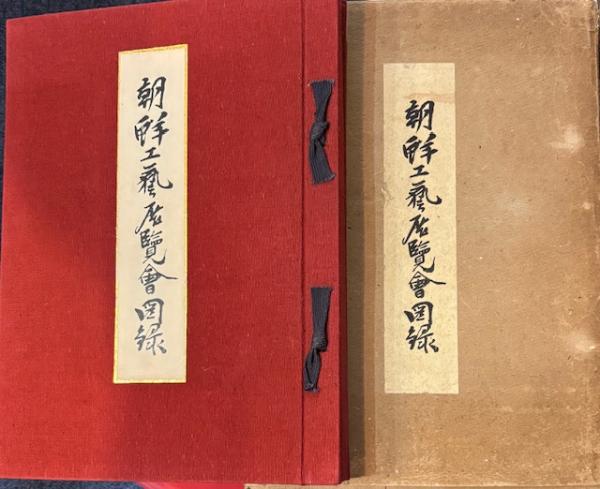 朝鮮工藝展覽會図録
朝鮮工藝展覽會図録